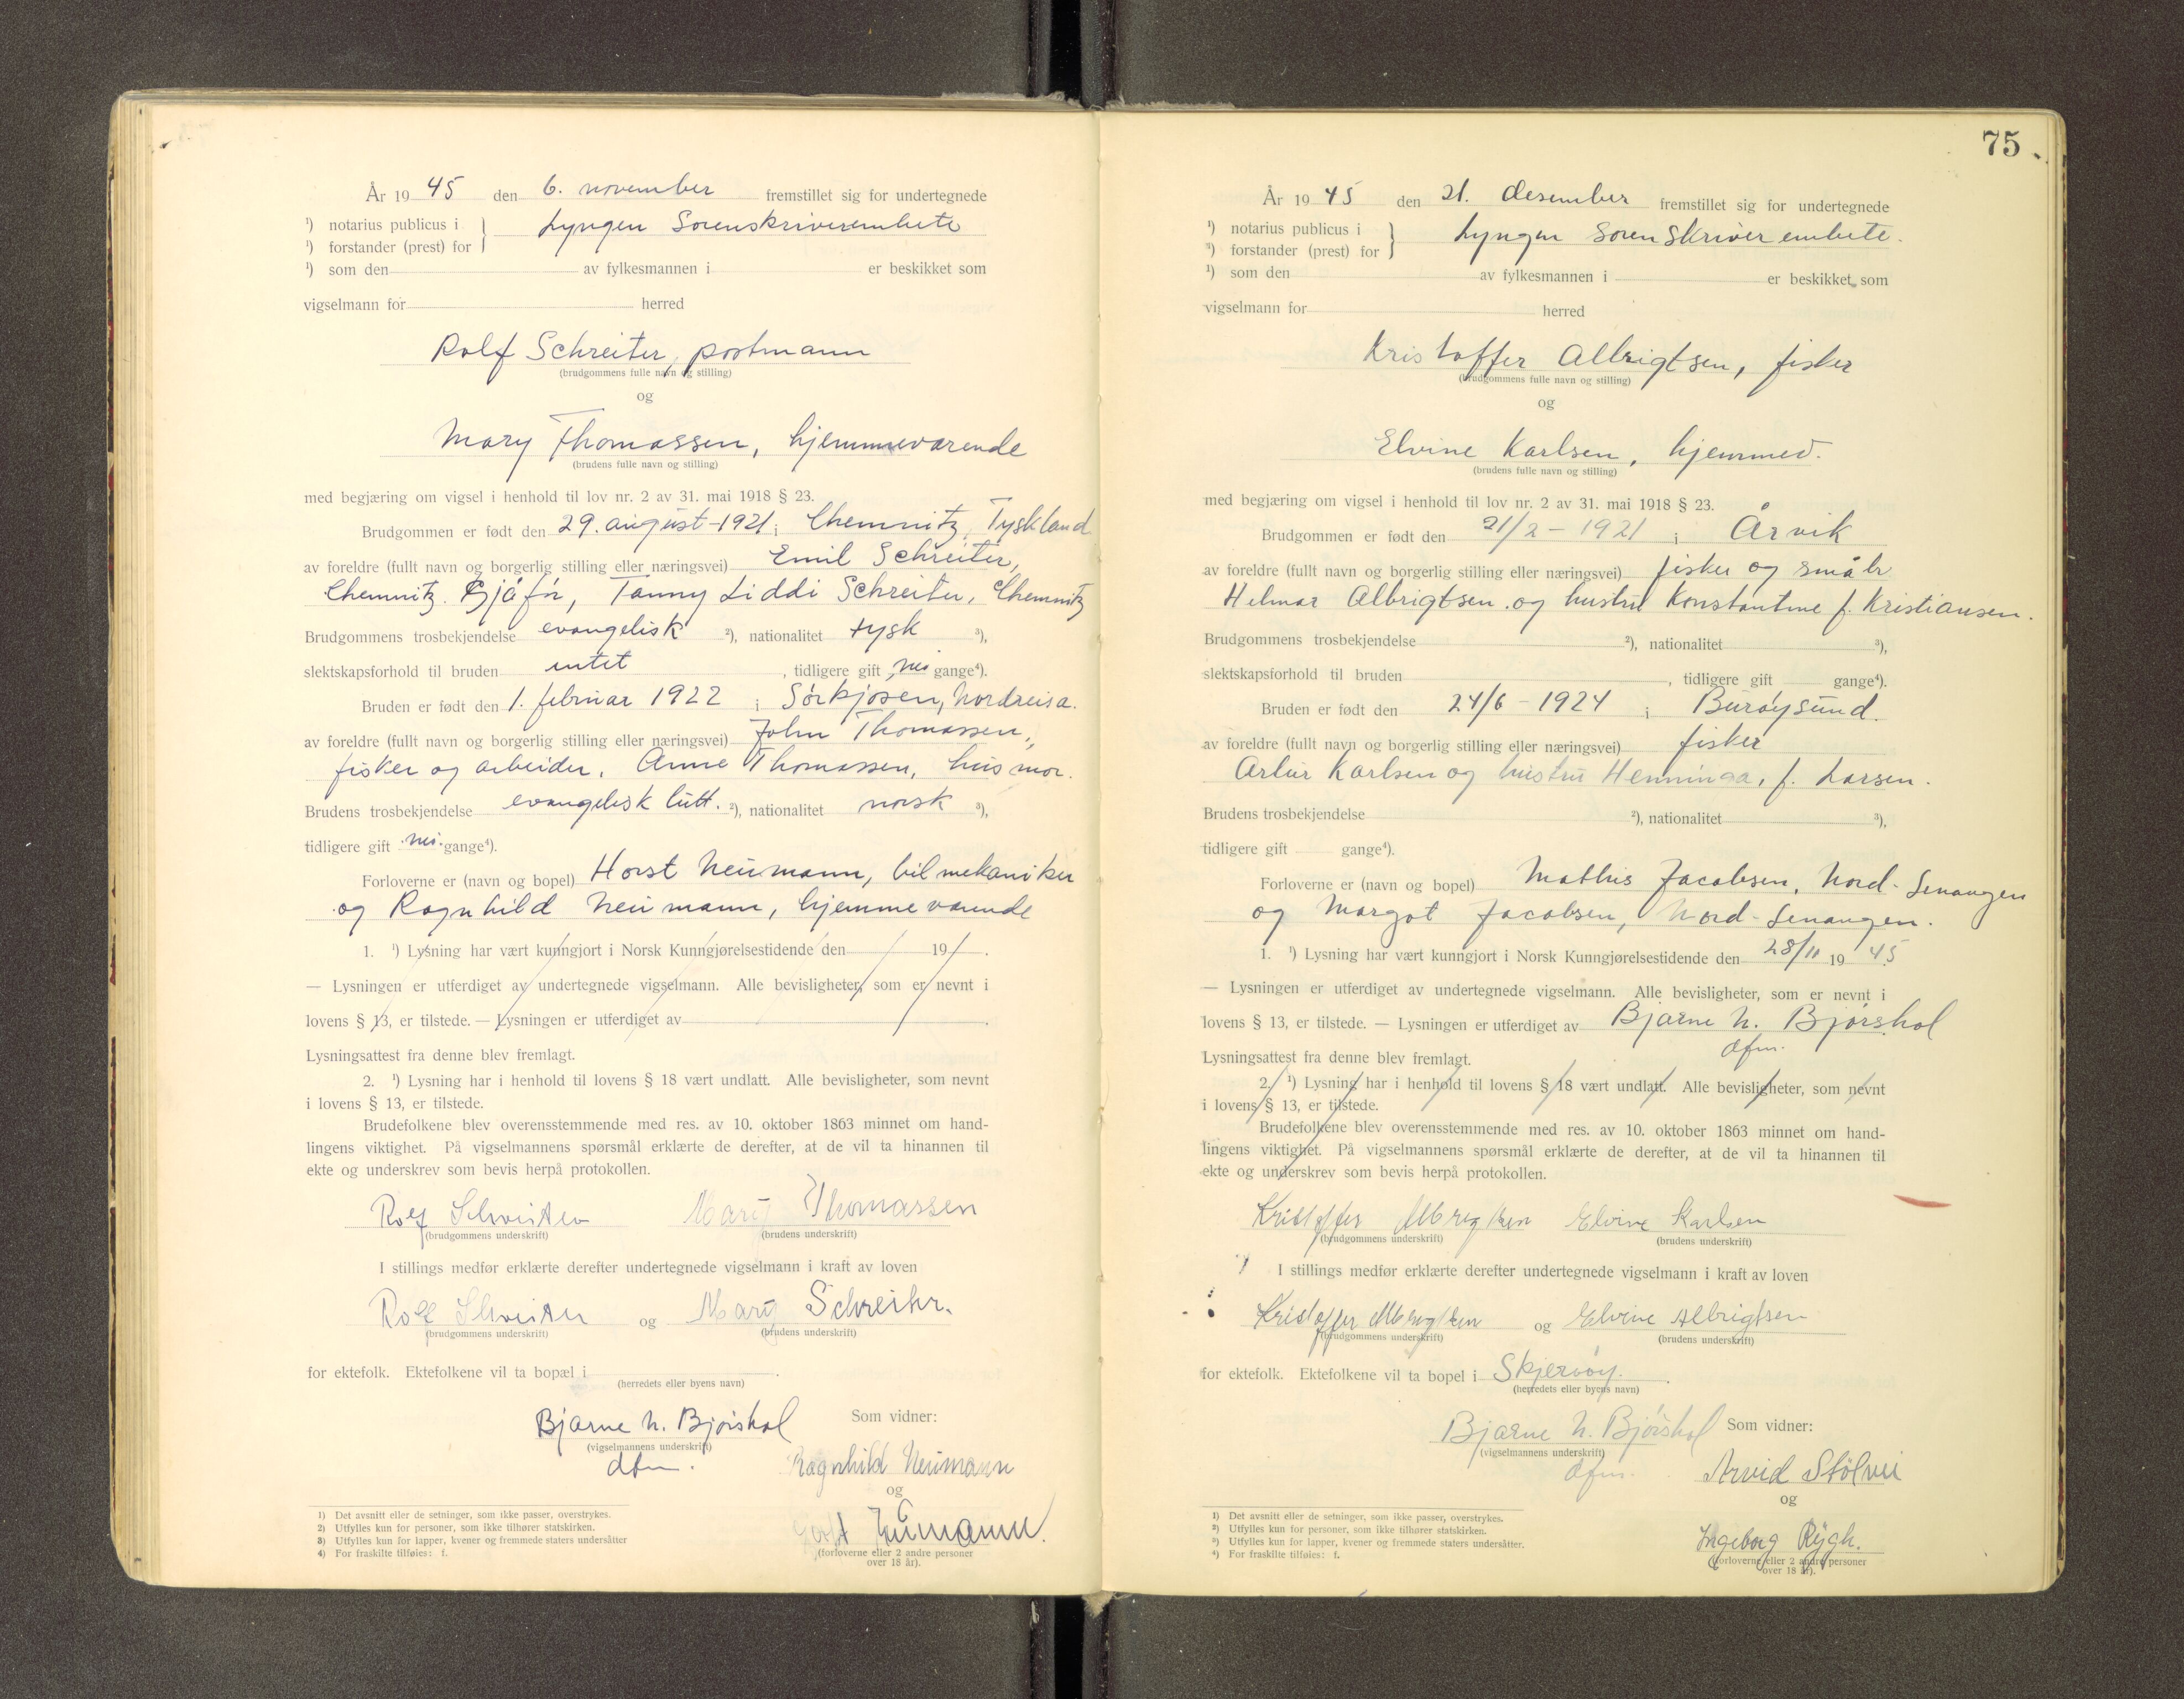 År 1945 den 6. november fremstillet sig for undertegnede
¹) notarius publicus i
¹) forstander (prest) for
Lyngen Sorenskriverembete
¹) som den av fylkesmannen i er beskikket som
vigselmann for herred
Rolf Schreiter, postmann
(brudgommens fulle navn og stilling)
og
Mary Thomassen, hjemmeværende
(brudens fulle navn og stilling)
med begjæring om vigsel i henhold til lov nr. 2 av 31. mai 1918 § 23.
Brudgommen er født den 29. august 1921 i Chemnitz, Tyskland
av foreldre (fullt navn og borgerlig stilling eller næringsvei) Emil Schreiter,
Chemnitz. Sjåfør, Fanny Liddi Schreiter, Chemnitz
Brudgommens trosbekjendelse evangelisk ²), nationalitet tysk ³),
slektskapsforhold til bruden intet, tidligere gift nei gange⁴).
Bruden er født den 1. februar 1922 i Sörkjosen, Nordreisa.
av foreldre (fullt navn og borgerlig stilling eller næringsvei) John Thomassen,
fisker og arbeider, Anne Thomassen, husmor.
Brudens trosbekjendelse evangelisk lutt. ²), nationalitet norsk ³),
tidligere gift nei gange⁴).
Forloverne er (navn og bopel) Horst Neumann, bilmekaniker
og Ragnhild Neumann, hjemmeværende
1. ¹) Lysning har vært kunngjort i Norsk Kunngjørelsestidende den 19 .
— Lysningen er utferdiget av undertegnede vigselmann. Alle bevisligheter, som er nevnt i
lovens § 13, er tilstede. — Lysningen er utferdiget av .
Lysningsattest fra denne blev fremlagt.
2. ¹) Lysning har i henhold til lovens § 18 vært undlatt. Alle bevisligheter, som nevnt
i lovens § 13, er tilstede.
Brudefolkene blev overensstemmende med res. av 10. oktober 1863 minnet om hand-
lingens viktighet. På vigselmannens spørsmål erklærte de derefter, at de vil ta hinannen til
ekte og underskrev som bevis herpå protokollen.
Rolf Schreiter Mary Thomassen
(brudgommens underskrift) (brudens underskrift)
I stillings medfør erklærte derefter undertegnede vigselmann i kraft av loven
Rolf Schreiter og Mary Schreiter.
(brudgommens underskrift) (brudens underskrift)
for ektefolk. Ektefolkene vil ta bopæl i .
(herredets eller byens navn)
Bjarne N. Bjørshol Som vidner:
(vigselmannens underskrift)
dfm. Ragnhild Neumann
og
Horst Neumann.
(forloverne eller 2 andre personer
over 18 år).
1) Det avsnitt eller de setninger, som ikke passer, overstrykes.
2) Utfylles kun for personer, som ikke tilhører statskirken.
3) Utfylles kun for lapper, kvener og fremmede staters undersåtter
4) For fraskilte tilføies: f.
75
År 1945 den 21. desember fremstillet sig for undertegnede
¹) notarius publicus i
¹) forstander (prest) for
Lyngen Sorenskriverembete.
¹) som den av fylkesmannen i er beskikket som
vigselmann for herred
Kristoffer Albrigtsen, fisker
(brudgommens fulle navn og stilling)
og
Elvine Karlsen, hjemmev.
(brudens fulle navn og stilling)
med begjæring om vigsel i henhold til lov nr. 2 av 31. mai 1918 § 23.
Brudgommen er født den 21/2 - 1921 i Årvik
av foreldre (fullt navn og borgerlig stilling eller næringsvei) fisker og småbr
Helmar Albrigtsen og hustru Konstantine f. Kristiansen.
Brudgommens trosbekjendelse ²), nationalitet ³),
slektskapsforhold til bruden , tidligere gift gange⁴).
Bruden er født den 24/6 - 1924 i Burøysund.
av foreldre (fullt navn og borgerlig stilling eller næringsvei) fisker
Artur Karlsen og hustru Henninga, f. Larsen.
Brudens trosbekjendelse ²), nationalitet ³),
tidligere gift gange⁴).
Forloverne er (navn og bopel) Mathis Jacobsen, Nord-Lenangen
og Margot Jacobsen, Nord-Lenangen.
1. ¹) Lysning har vært kunngjort i Norsk Kunngjørelsestidende den 28/11 1945
— Lysningen er utferdiget av undertegnede vigselmann. Alle bevisligheter, som er nevnt i
lovens § 13, er tilstede. — Lysningen er utferdiget av Bjarne N. Bjørshol
dfm.
Lysningsattest fra denne blev fremlagt.
2. ¹) Lysning har i henhold til lovens § 18 vært undlatt. Alle bevisligheter, som nevnt
i lovens § 13, er tilstede.
Brudefolkene blev overensstemmende med res. av 10. oktober 1863 minnet om hand-
lingens viktighet. På vigselmannens spørsmål erklærte de derefter, at de vil ta hinannen til
ekte og underskrev som bevis herpå protokollen.
Kristoffer Albrigtsen Elvine Karlsen
(brudgommens underskrift) (brudens underskrift)
I stillings medfør erklærte derefter undertegnede vigselmann i kraft av loven
Kristoffer Albrigtsen og Elvine Albrigtsen
(brudgommens underskrift) (brudens underskrift)
for ektefolk. Ektefolkene vil ta bopel i Skjervøy.
(herredets eller byens navn)
Bjarne N. Bjørshol Som vidner:
(vigselmannens underskrift)
dfm. Arvid Stölvei
og
Ingeborg Rygh.
(forloverne eller 2 andre personer
over 18 år).
1) Det avsnitt eller de setninger, som ikke passer, overstrykes.
²) Utfylles kun for personer, som ikke tilhører statskirken.
³) Utfylles kun for lapper, kvener og fremmede staters undersåtter.
⁴) For fraskilte tilføies: f.